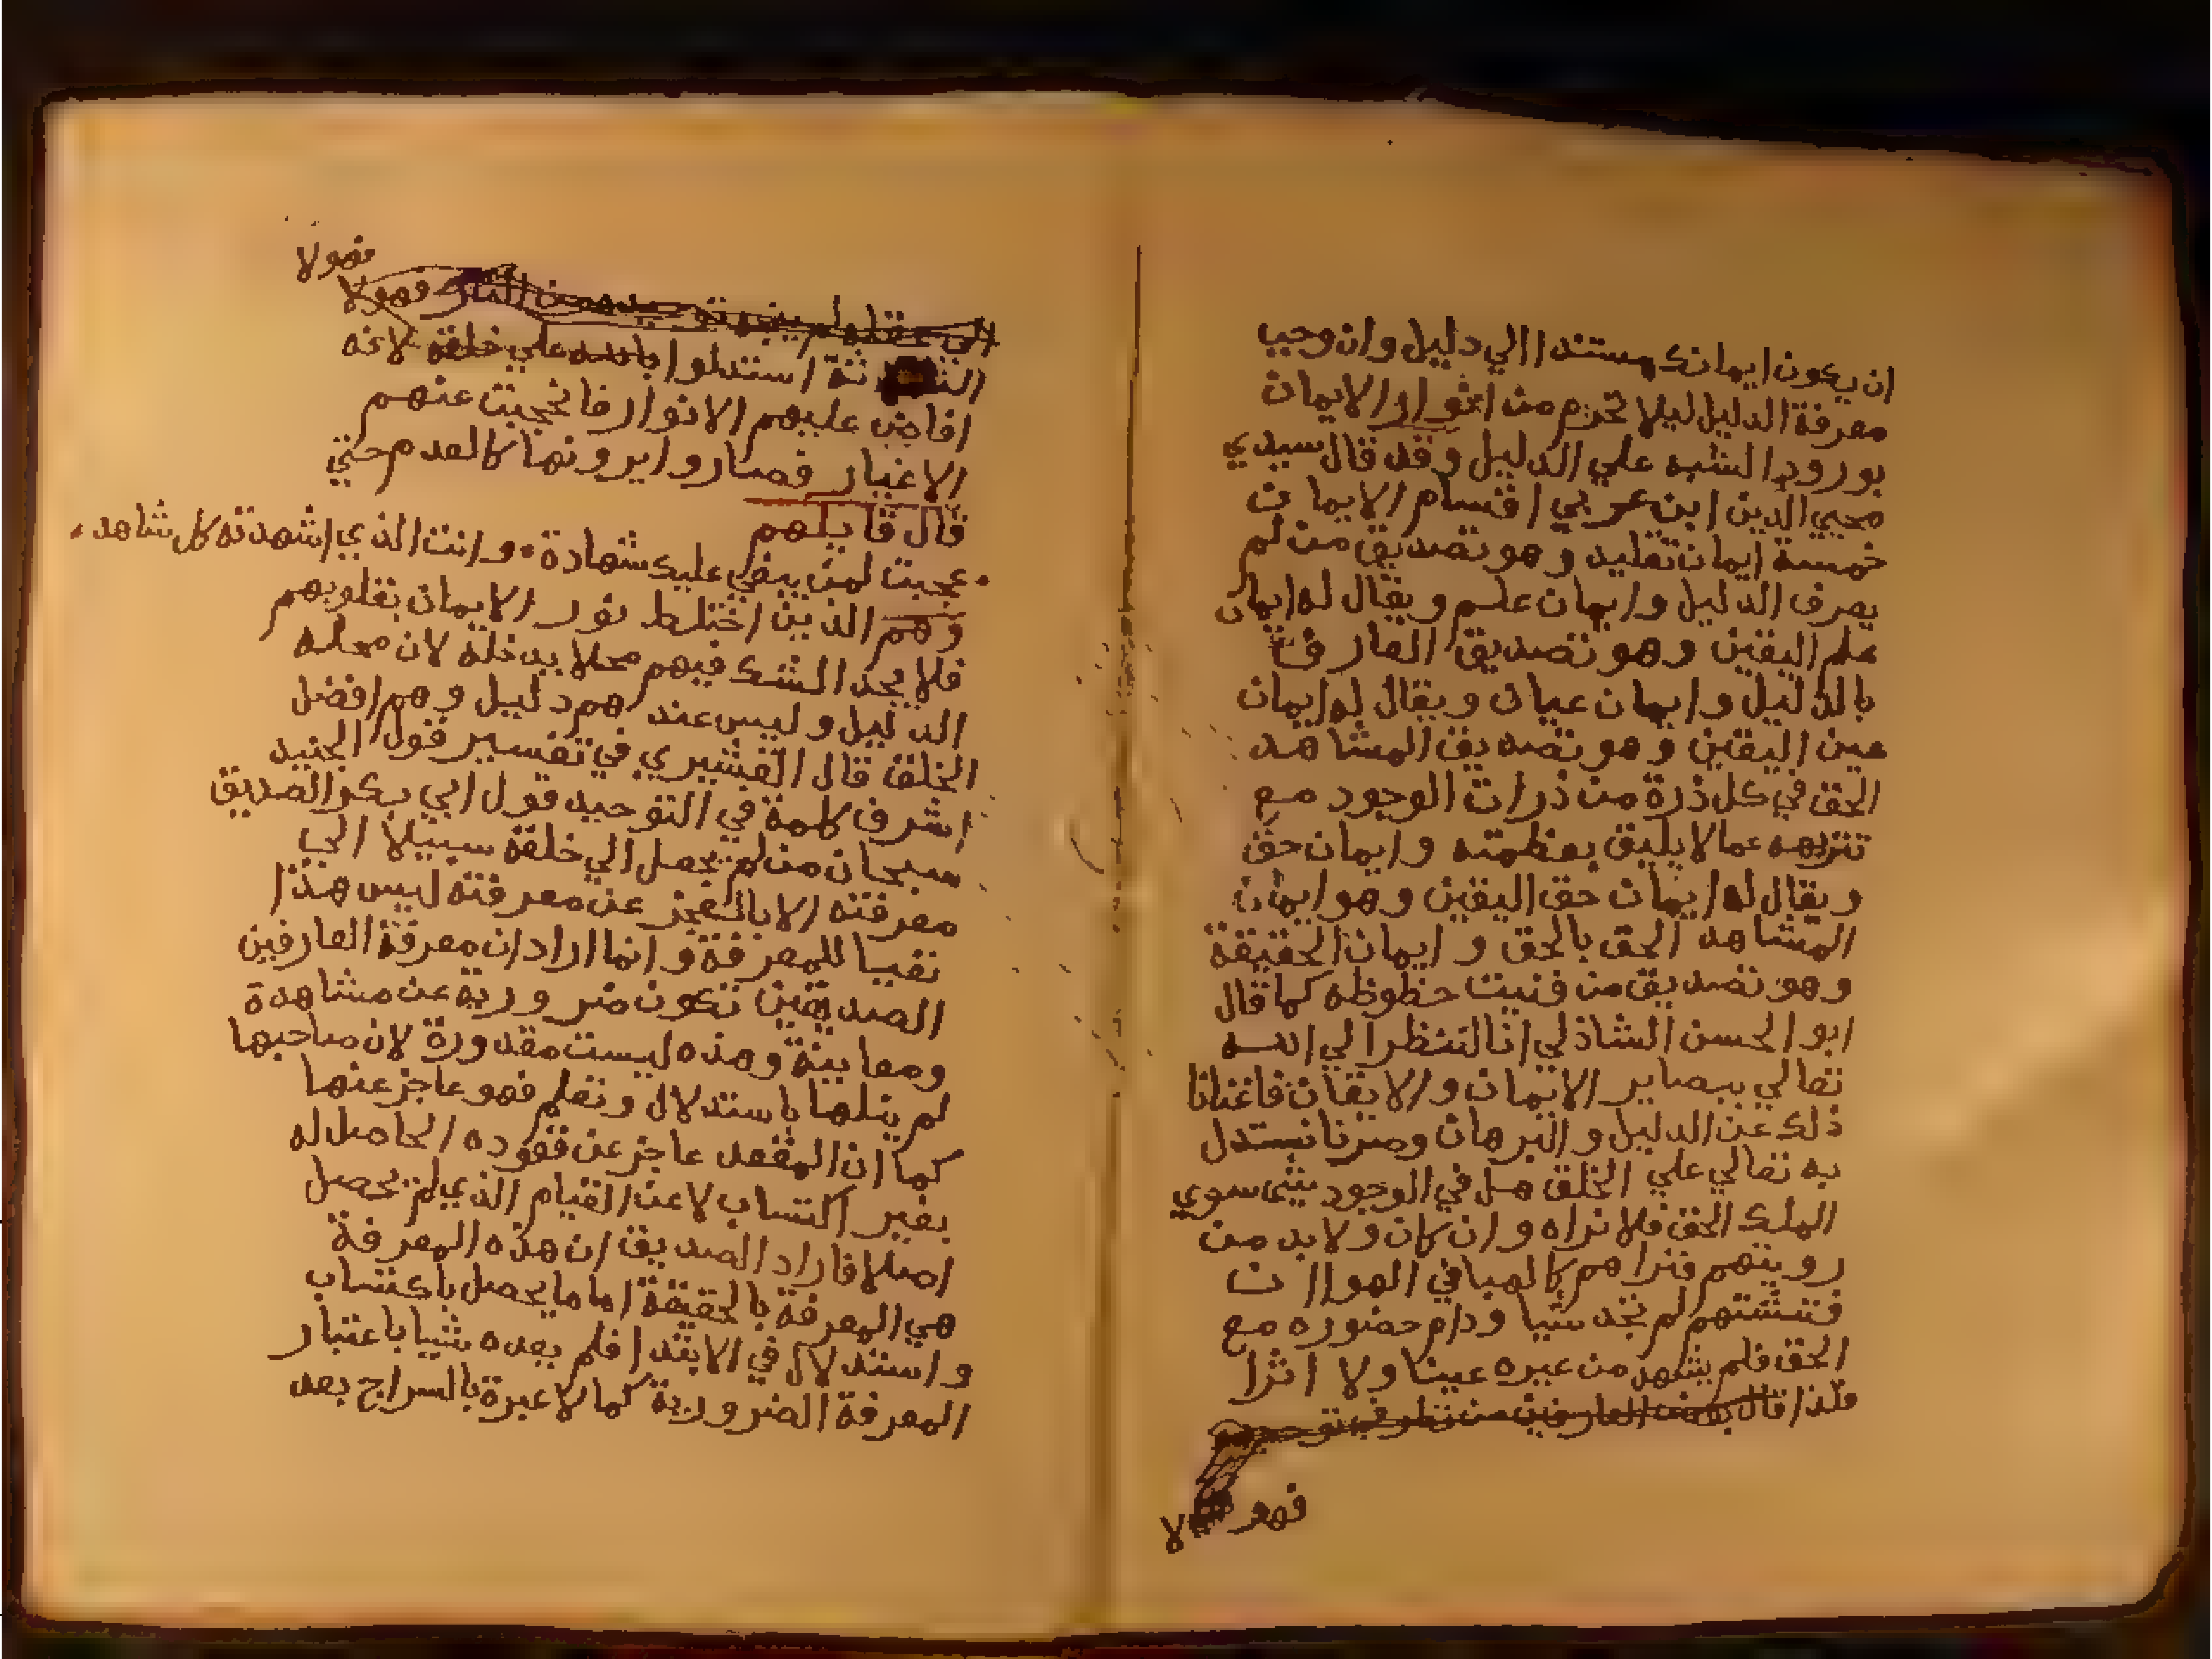 ان يكون ايمانك مستندا الي دليل وان وجب
معرفة الدليل ليلا تحرم من انوار الايمان
بورود الشبه علي الدليل وقد قال سيدي
محيي الدين ابن عربي اقسام الايمان
خمسة ايمان تقليد وهو تصديق من لم
يعرف الدليل وايمان علم ويقال له ايمان
علم اليقين وهو تصديق العارف
بالدليل وايمان عيان ويقال له ايمان
عين اليقين وهو تصديق المشاهد
الحق في كل ذرة من ذرات الوجود مع
تنزيهه عما لا يليق بعظمته وايمان حق
ويقال له ايمان حق اليقين وهو ايمان
المشاهد الحق بالحق و ايمان الحقيقة
وهو تصديق من فنيت حظوظه كما قال
ابو الحسن الشاذلي انا لننظر الي الله
تعالي ببصاير الايمان والايقان فاغنانا
ذلك عن الدليل والبرهان وصرنا نستدل
به تعالي علي الخلق هل في الوجود شئ سوي
الملك الحق فلا نراه وان كان ولا بد من
رويتهم فنراهم كالهبا في الهوا ان
فتشتهم لم تجد شيا ودام حضوره مع
الحق فلم يشهد من غيره عينا ولا اثرا
فلذا قال بعض العارفين من نظر في توحيده
فهولا
فهولا
الي عقله لم ينجه توحيده من النار فهولا
الثلاثة استدلوا بالله علي خلقه لانه
افاض عليهم الانوار فانحجبت عنهم
الاغيار فصاروا يرونها كالعدم حتي
قال قايلهم
عجبت لمن يبغي عليك شهادة • وانت الذي اشهدته كل شاهد •
وهم الذين اختلط نور الايمان بقلوبهم
فلا يجد الشك فيهم محلا يدخله لان محله
الدليل وليس عندهم دليل وهم افضل
الخلق قال القشيري في تفسير قول الجنيد
اشرف كلمة في التوحيد قول ابي بكر الصديق
سبحان من لم يجعل الي خلقه سبيلا الي
معرفته الا بالعجز عن معرفته ليس هذا
نفيا للمعرفة وانما اراد ان معرفة العارفين
الصديقين تكون ضرورية عن مشاهدة
ومعاينة وهذه ليست مقدورة لان صاحبها
لم ينلها باستدلال وتعلم فهو عاجز عنها
كما ان المقعد عاجز عن قعوده الحاصل له
بغير اكتساب لا عن القيام الذي لم يحصل
اصلا فاراد الصديق ان هذه المعرفة
هي المعرفة بالحقيقة اما ما يحصل باكتساب
واستدلال في الابتدا فلم يعده شيا باعتبار
المعرفة الضرورية كما لا عبرة بالسراج بعد